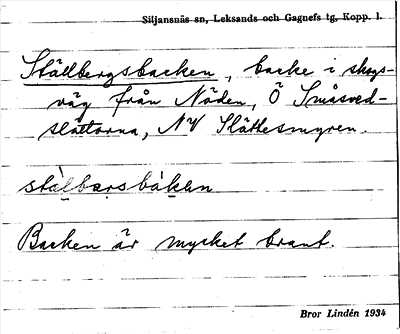 Siljansnäs sn, Leksands och Gagnefs tg, Kopp. l.
Ställbergsbacken, backe i skogs-
väg från Nöden, Ö Småsved-
slåttorna, NV Slättesmyren.
stàlbarsbákun
Backen är mycket brant.
Bror Lindén 1934